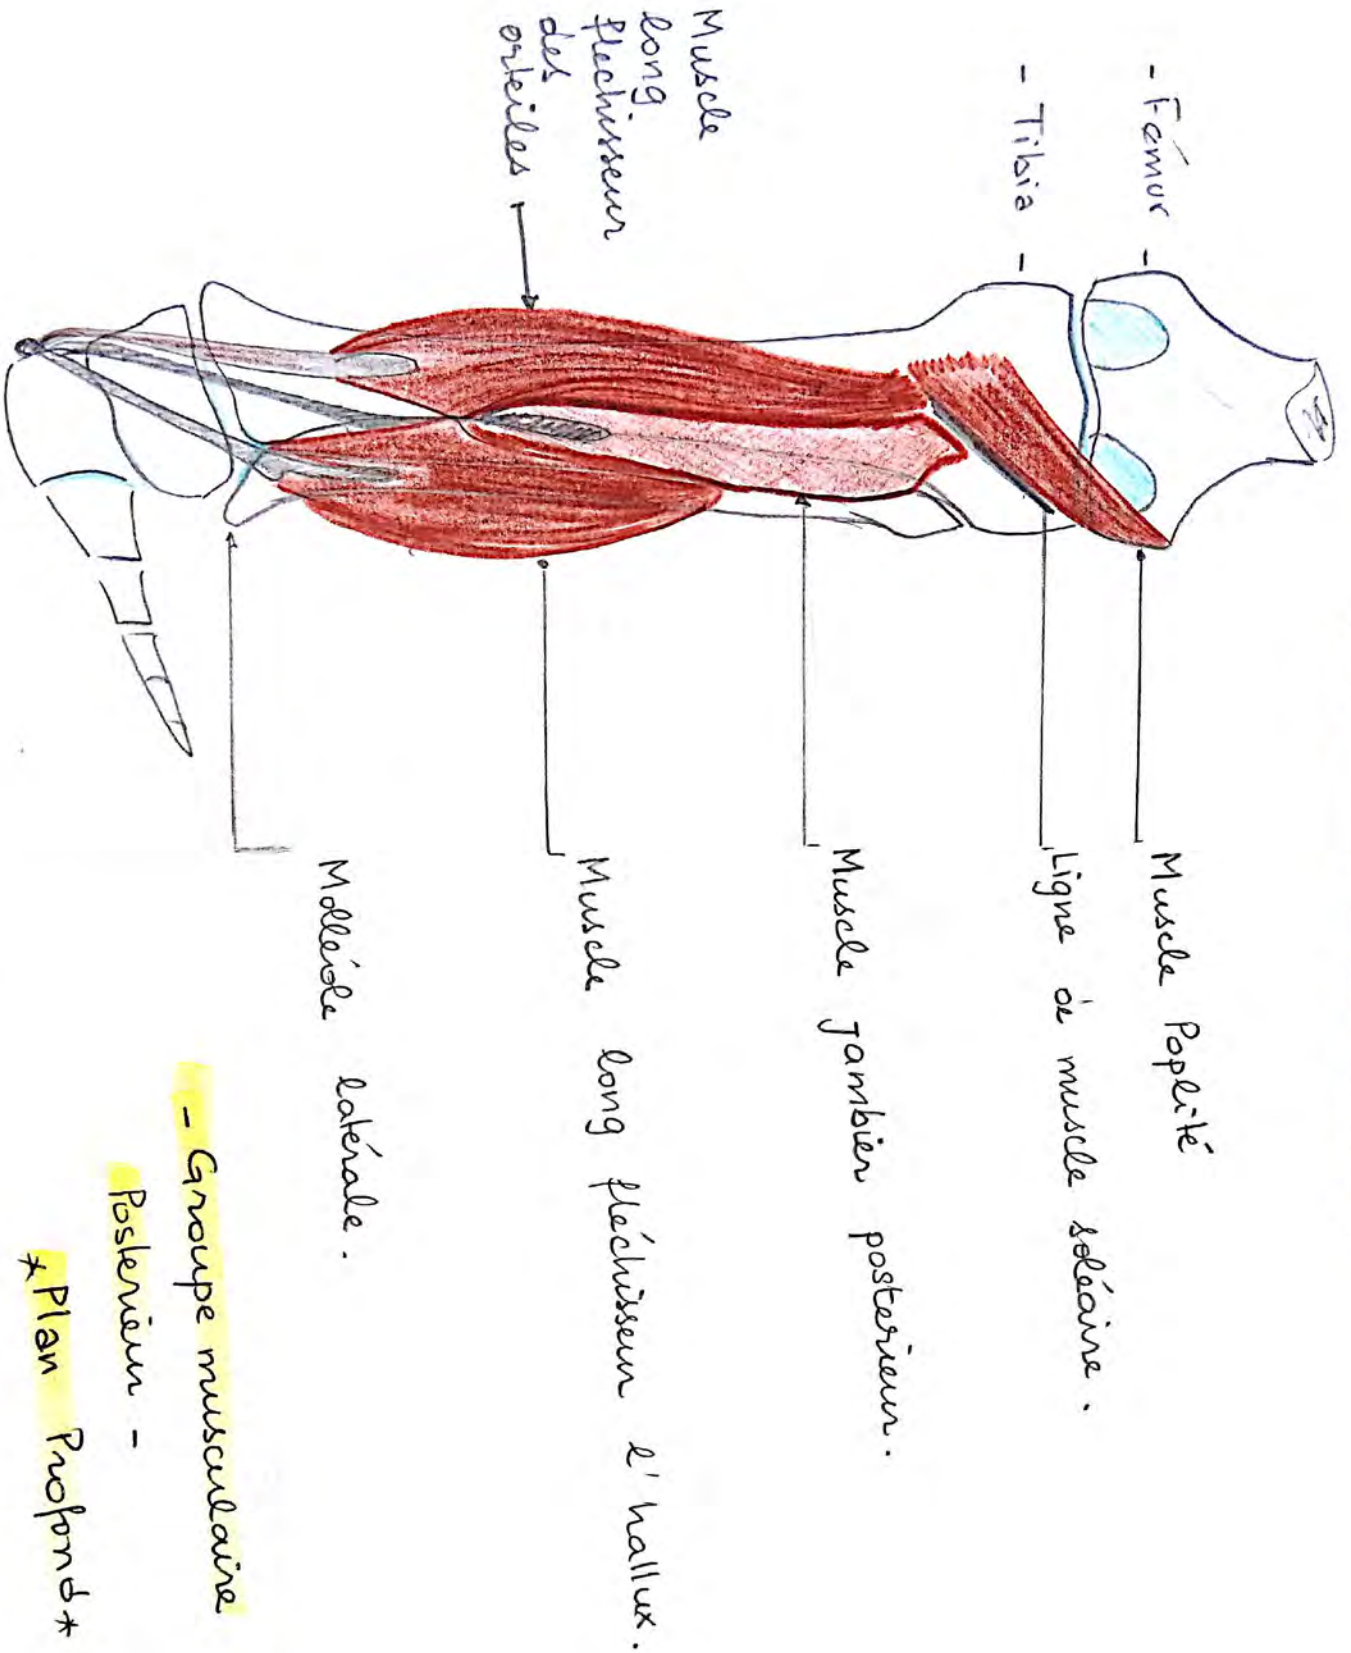 - Fémur -
- Tibia -
Muscle
long
flechisseur
des
orteiles
Muscle Poplité
Ligne de muscle soléaire.
Muscle jambier posterieur.
Muscle long fléchisseur l'hallux.
Molléole latérale.
- Groupe musculaire
Posterieur -
*Plan Profond*